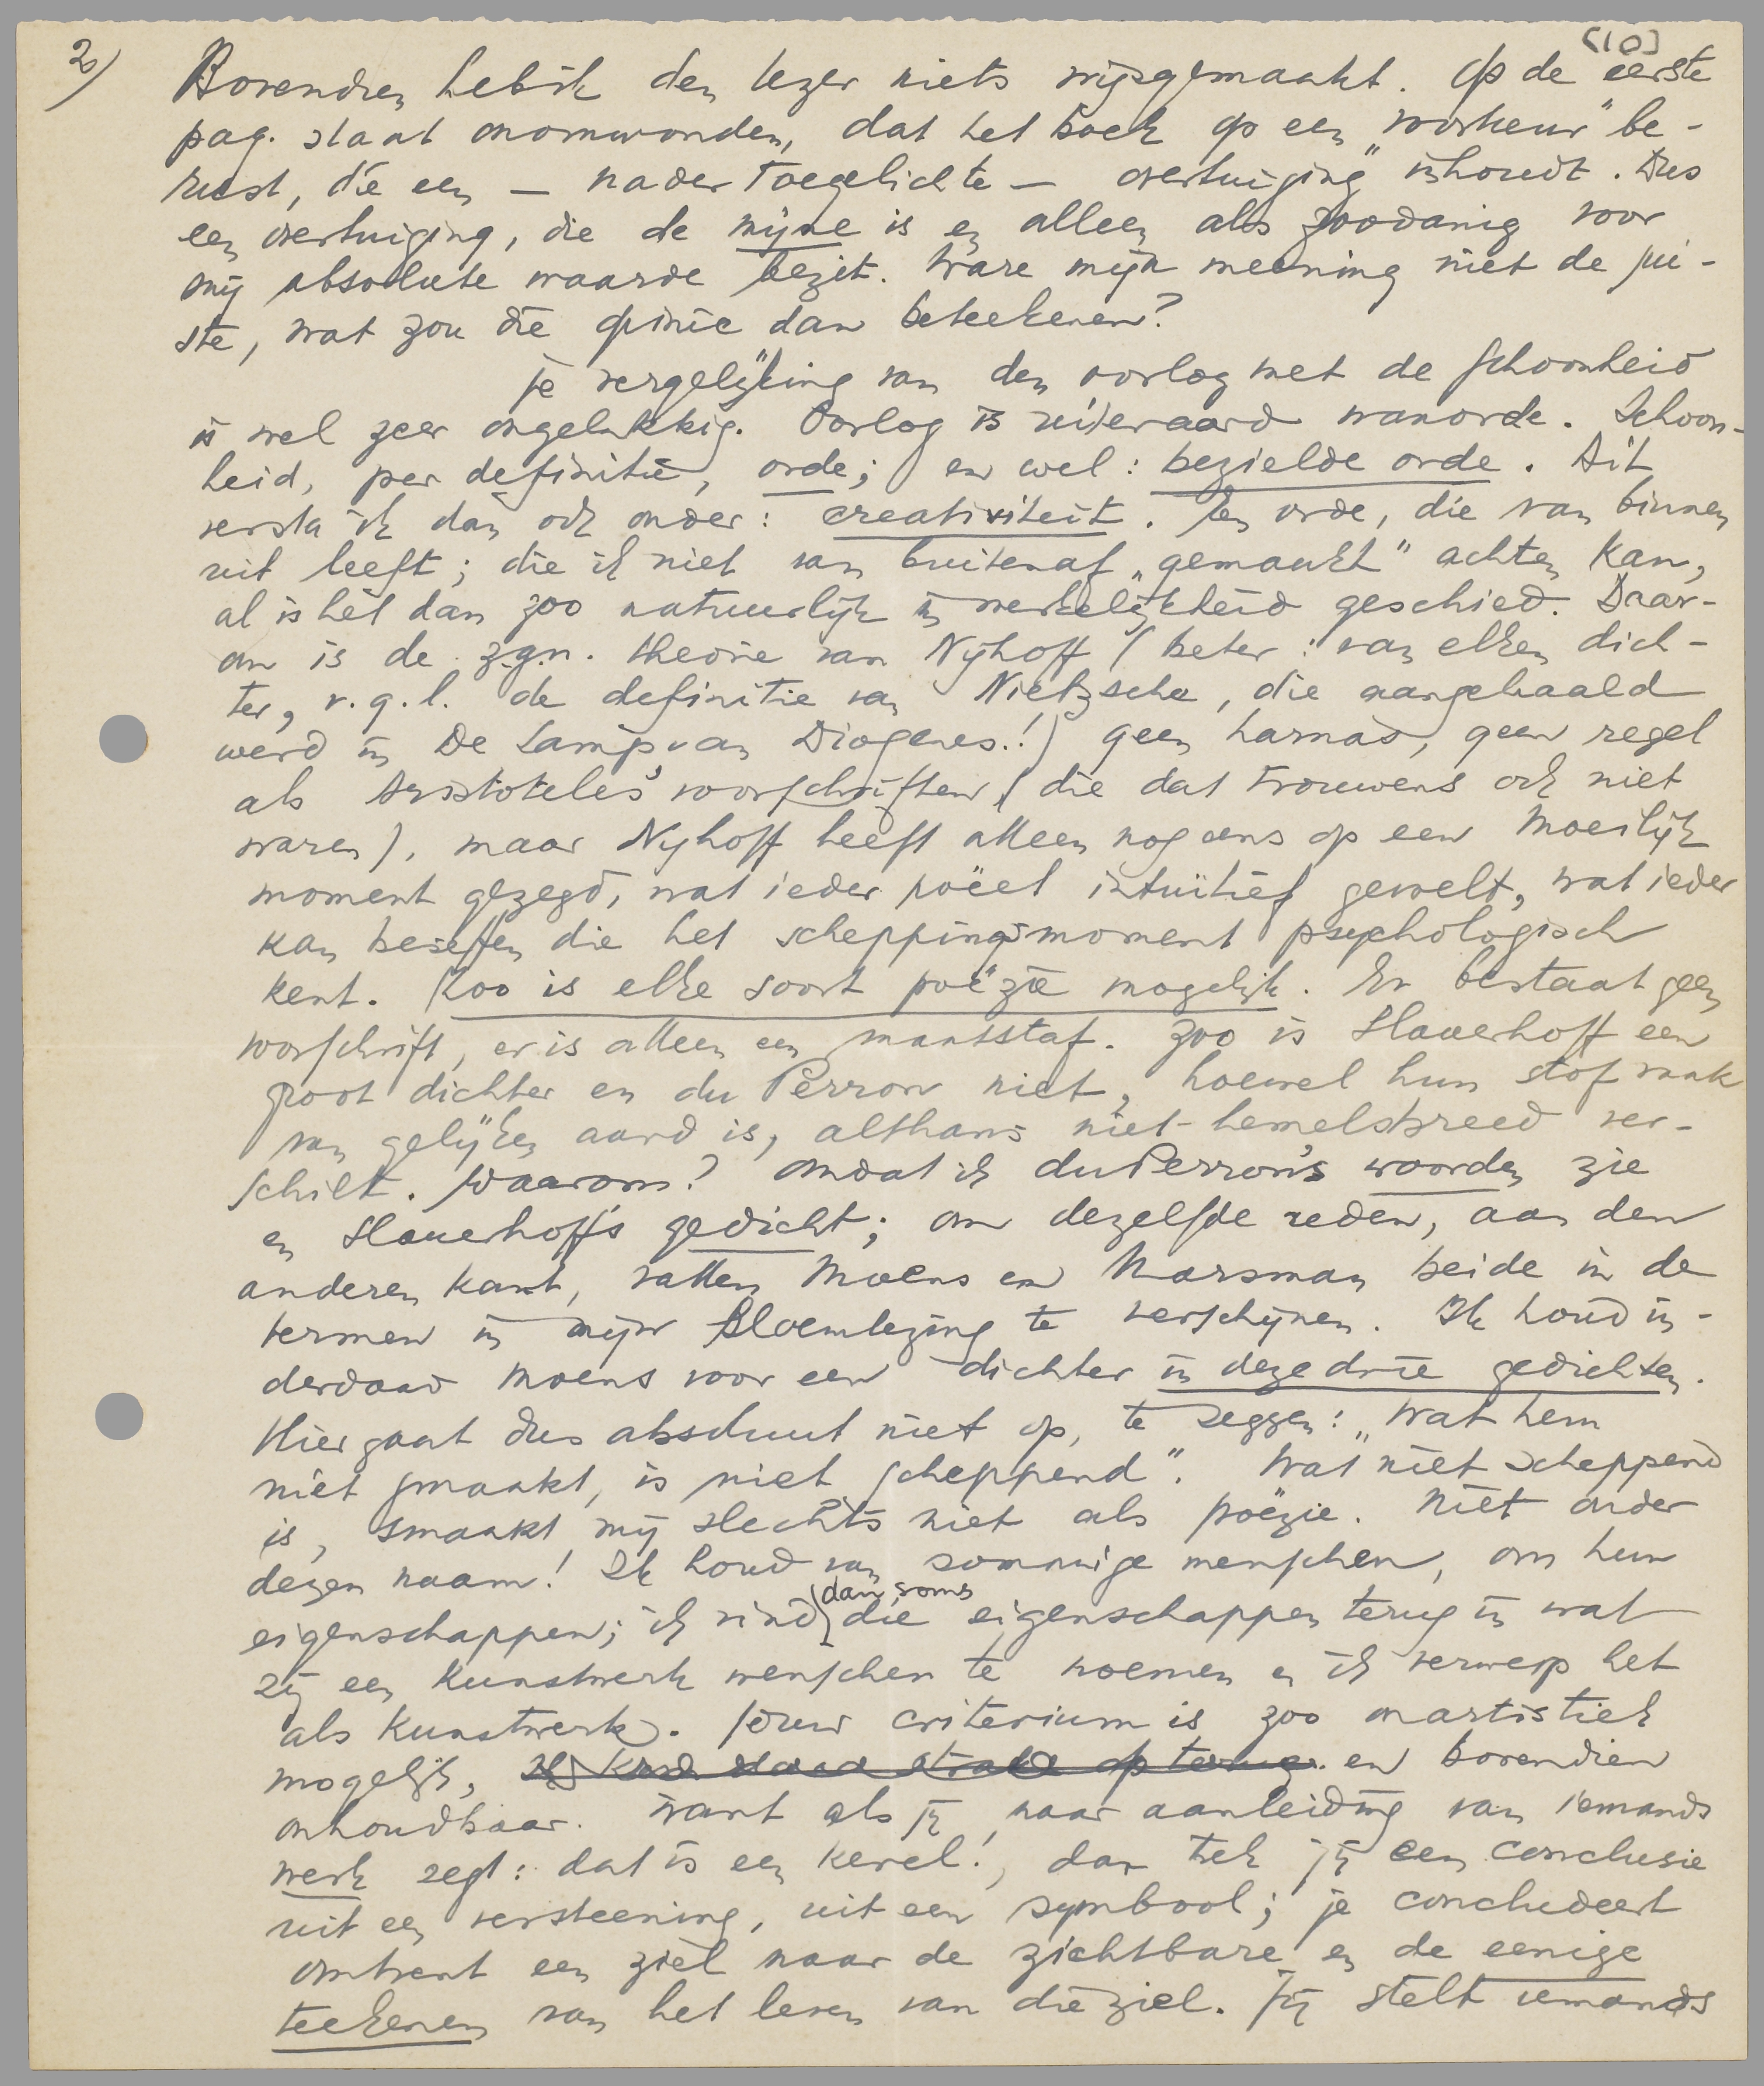 2)
[10]
Bovendien heb ik den lezer niets wijsgemaakt. Op de eerste
pag. staat onomwonden, dat het boek op een „voorkeur” be-
rust, die een — nader toegelichte — „overtuiging” inhoudt. Dus
een overtuiging, die de mijne is en alleen als zoodanig voor
mij absolute waarde bezit. Ware mijn meening niet de jui-
ste, wat zou die opinie dan beteekenen?
Je vergelijking van den oorlog met de schoonheid
is wel zeer ongelukkig. Oorlog is uiteraard wanorde. Schoon-
heid, per definitie, orde; en wel: bezielde orde. Dit
versta ik dan ook onder: creativiteit. Een orde, die van binnen
uit leeft; die ik niet van buitenaf „gemaakt” achten kan,
al is hèt dan zoo natuurlijk in werkelijkheid geschied. Daar-
om is de z.g.n. theorie van Nijhoff (beter: van elken dich-
ter, v.g.l. de definitie van Nietzsche, die aangehaald
werd in De Lamp van Diogenes.!) geen harnas, geen regel
als Aristoteles' voorschriften (die dat trouwens ook niet
waren), maar Nijhoff heeft alleen nog eens op een moeilijk
moment gezegd, wat ieder poëet intuïtief gevoelt, wat ieder
kan beseffen die het scheppingsmoment psychologisch
kent. Zoo is elke soort poëzie mogelijk. Er bestaat geen
voorschrift, er is alleen een maatstaf. Zoo is Slauerhoff een
groot dichter en du Perron niet, hoewel hun stof vaak
van gelijken aard is, althans niet-hemelsbreed ver-
schilt. Waarom? Omdat ik du Perron's woorden zie
en Slauerhoff's gedicht; om dezelfde reden, aan den
anderen kant, vallen Moens en Marsman beide in de
termen in mijn Bloemlezing te verschijnen. Ik houd in-
derdaad Moens voor een dichter in deze drie gedichten.
Hier gaat dus absoluut niet op, te zeggen: „Wat hem
niet smaakt, is niet scheppend”. Wat niet scheppend
is, smaakt mij slechts niet als poëzie. Niet onder
dezen naam! Ik houd van sommige menschen, om hun
eigenschappen; ik vind dan soms die eigenschappen terug in wat
zij een kunstwerk wenschen te noemen en ik verwerp het
als kunstwerk. Jouw criterium is zoo onartistiek
mogelijk, en bovendien
onhoudbaar. Want als jij, naar aanleiding van iemands
werk zegt: dat is een kerel!, dan trek jij een conclusie
uit een versteening, uit een symbool; je concludeert
omtrent een ziel naar de zichtbare en de eenige
teekenen van het leven van die ziel. Jij stelt iemands